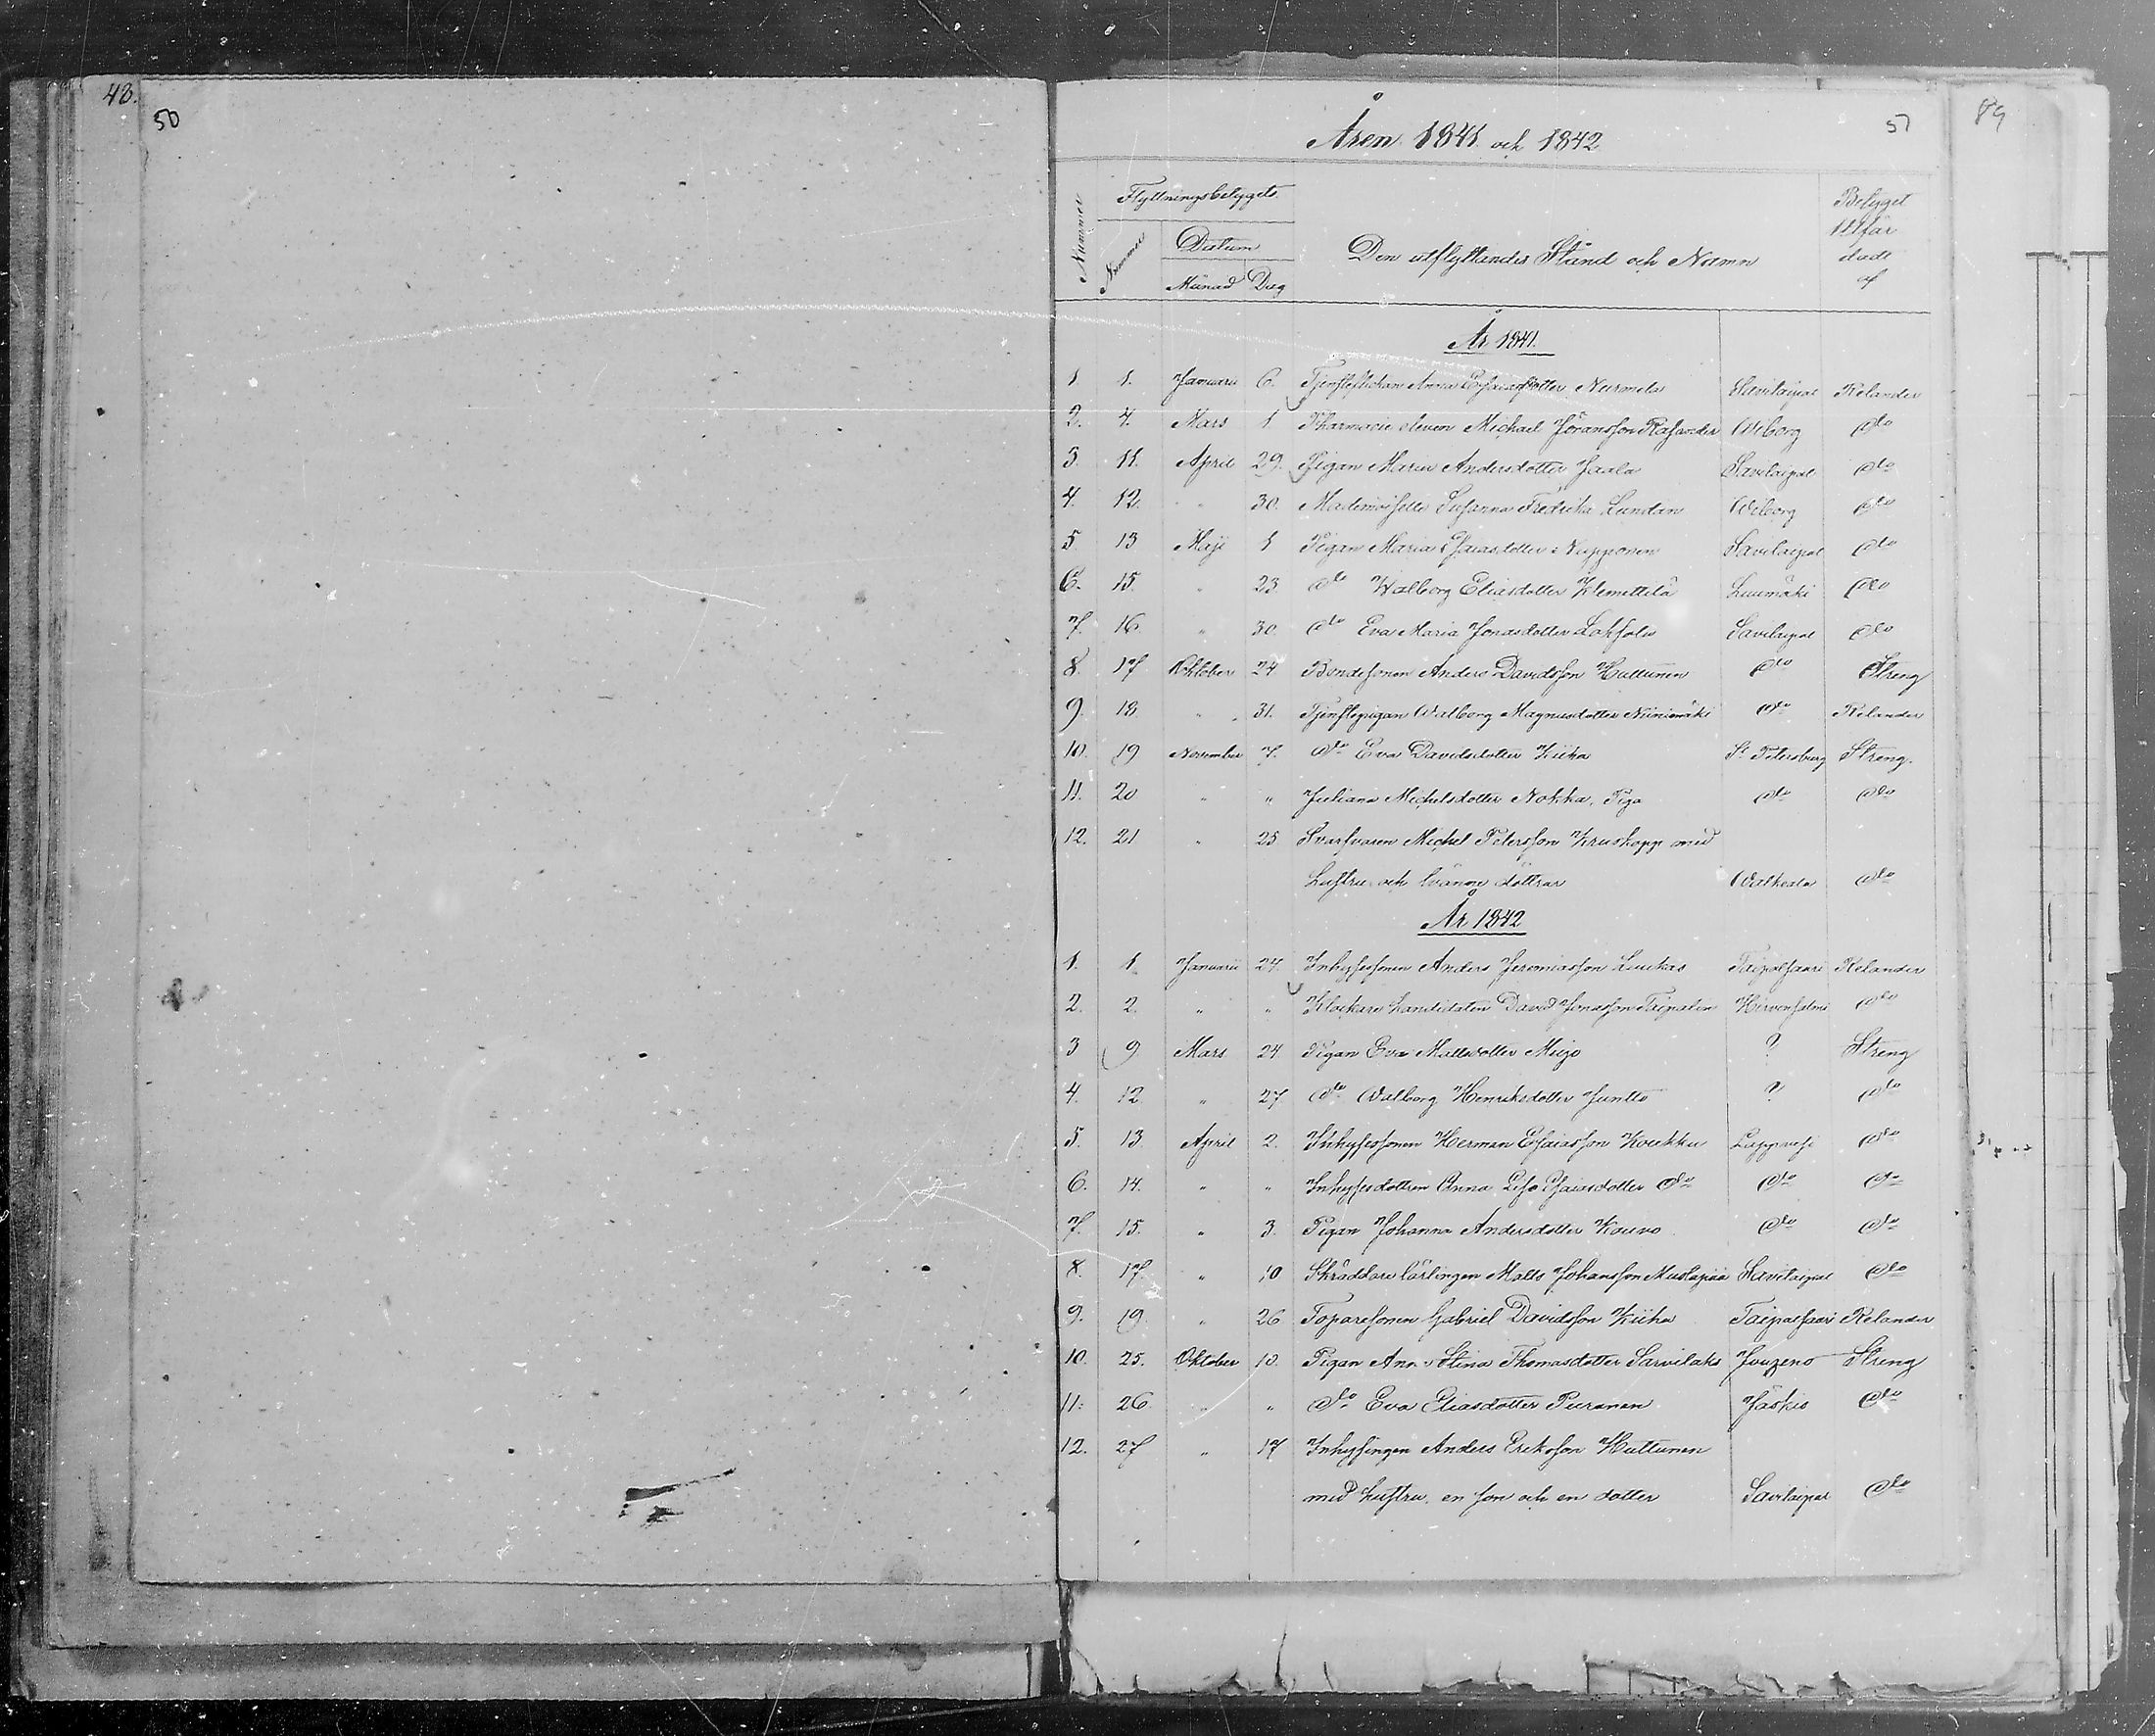 48.
50
Åren 1841 och 1842
57
89
Nummer
Flyttningsbetygets
Nummer
Datum
Månad Dag
Den utflyttandes Stånd och Namn
Betyget
utfär
dadt
af
År 1841.
1. 1. Januari 6. Tjensteflickan Anna Esaiasdotter Nurmela Savitaipal Relander
2. 4. Mars 1 Pharmacie eleven Michael Göransson Wiborg do
3. 11. April 29. Pigan Maria Andersdotter Jaala Savitaipal do
4. 12. " 30. Mademoiselle Susanna Fredrika Lundan Wiborg do
5 13 Maji 1 Pigan Maria Esaiasdotter Nupponen Savitaipal do
6. 15. " 23 do Walborg Eliasdotter Klemettilä Luumäki do
7. 16. " 30. do Eva Maria Jonasdotter Savitaipal do
8. 17 Oktober 24 Bondesonen Anders Davidsson Huttunen do Streng
9. 18. " 31. Tjenstepigan Walborg Magnusdotter Niinimäki do Relander
10. 19 November 7. do Eva Davidsdotter Kiiha St Petersburg Streng.
11. 20 " " Juliana Michelsdotter Nokka, Piga do do
12. 21 " 25 Svarfvaren Michel Petersson Kruskopp med
hustru och tvänne döttrar Walkeala do
År 1842
1. 1. Januarii 24. Inhysessonen Anders Jeremiasson Luukas Taipalsaari Relander
2. 2. " " Klockare kandidaten David Jonasson Taipalen Hirvensalmi do
3 9 Mars 24 Pigan Eva Mattsdotter ? Streng
4. 12. " 27 do Walborg Henriksdotter Juntto ? do
5. 13. April 2. Inhysessonen Herman Esaiasson Koukku Lappvesi do
6. 14. " " Inhysesdottren Anna Lisa Esaiasdotter do do do
7. 15. " 3. Pigan Johanna Andersdotter Kouvo do do
8. 17. " 10 Skräddare lärlingen Matts Johansson Mustapää Savitaipal do
9. 19. " 26 Torparesonen Gabriel Davidsson Kiiha Taipalsaari Relander
10. 25. Oktober 10. Pigan Anna Stina Thomasdotter Sarvilaks Jouzeno Streng
11. 26 " " do Eva Eliasdotter Puranen Jäskis do
12. 27 " 17 Inhysingen Anders Eriksson Huttunen
med hustru, en son och en dotter Savitaipal do